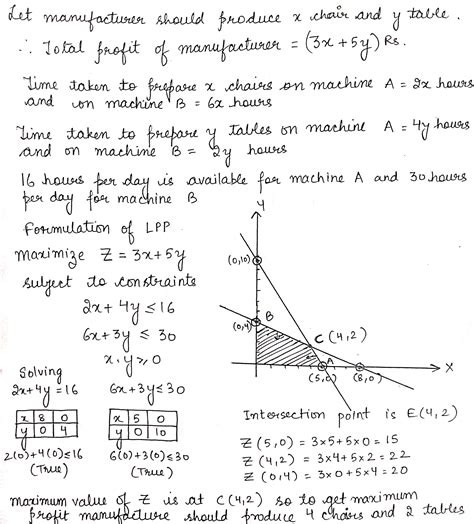 Let manufacturer should produce x chair and y table.
∴ Total profit of manufacturer = (3x + 5y) Rs.
Time taken to prepare x chairs on machine A = 2x hours
and on machine B = 6x hours
Time taken to prepare y tables on machine A = 4y hours
and on machine B = 2y hours
16 hours per day is available for machine A and 30 hours
per day for machine B
Formulation of LPP
Maximize Z = 3x + 5y
subject to constraints
2x + 4y ≤ 16
6x + 3y ≤ 30
x, y ≥ 0
Solving
2x + 4y = 16
x 8 0
y 0 4
2(0) + 4(0) ≤ 16
(True)
6x + 3y ≤ 30
x 5 0
y 0 10
6(0) + 3(0) ≤ 30
(True)
Y
(0,10)
(0,4) B
C (4,2)
A
X
(5,0) (8,0)
Intersection point is E(4,2)
Z (5,0) = 3×5 + 5×0 = 15
Z (4,2) = 3×4 + 5×2 = 22
Z (0,4) = 3×0 + 5×4 = 20
maximum value of Z is at C(4,2) so to get maximum
profit manufacture should produce 4 chairs and 2 tables